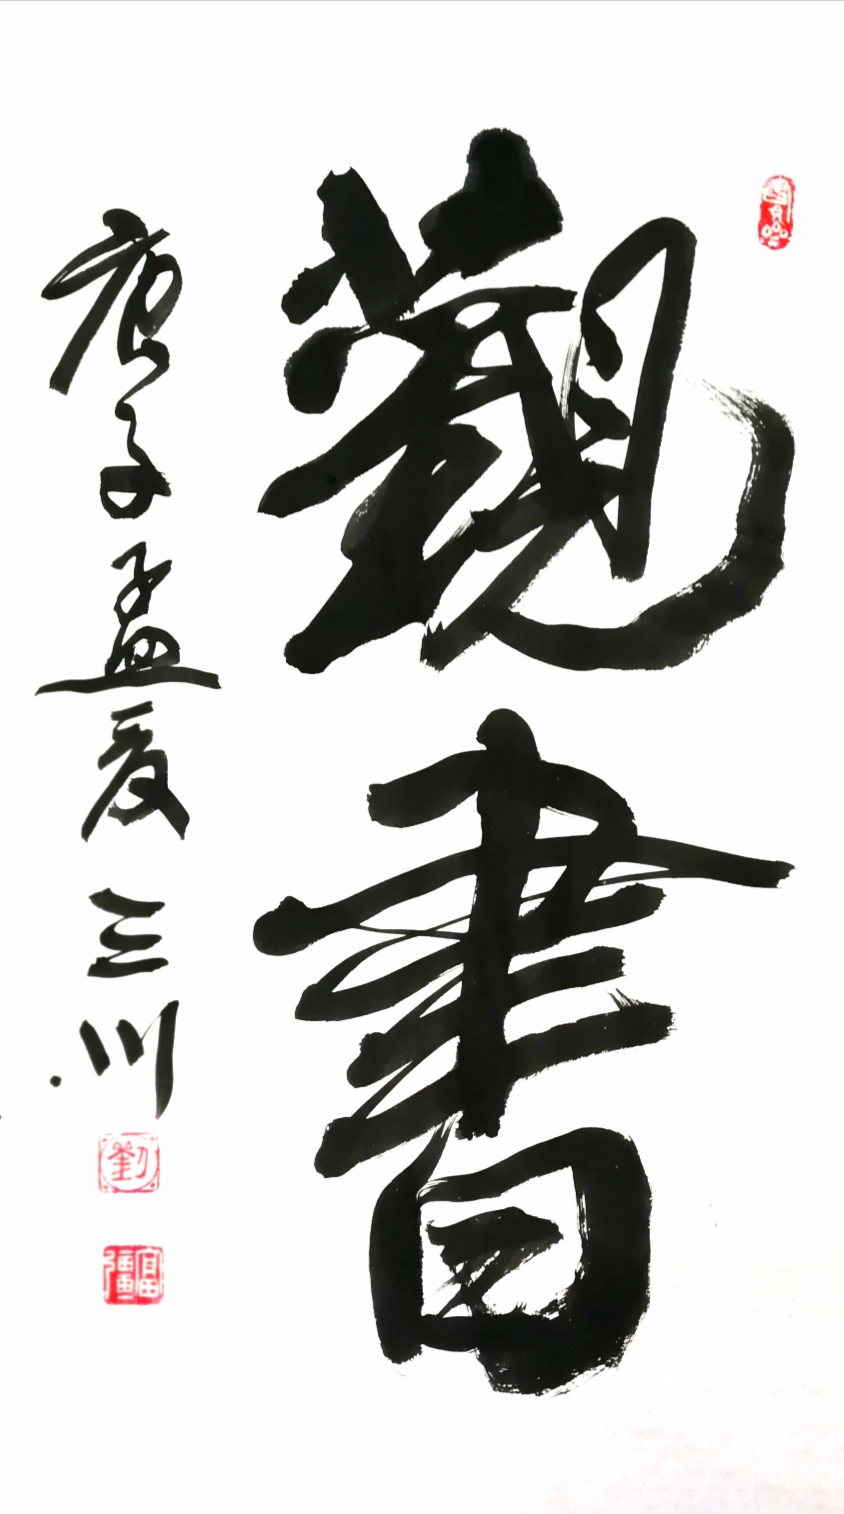 觀書
庚子孟夏三川
劉
富疆